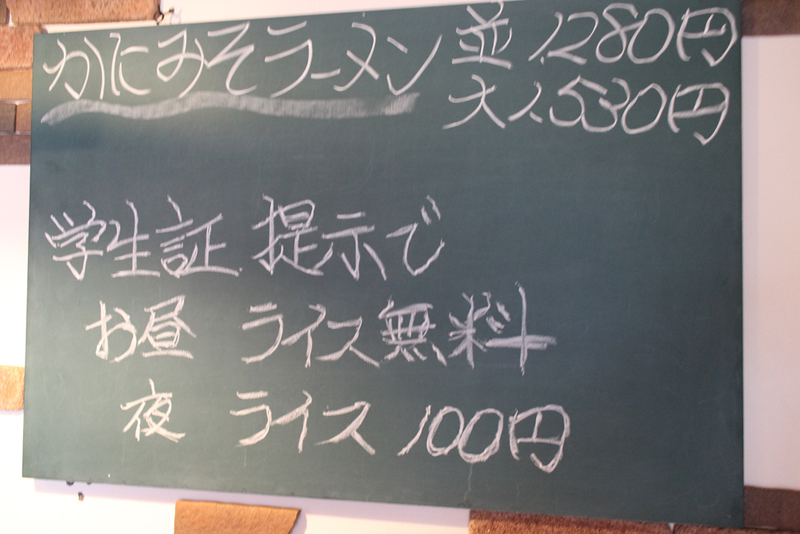 かにみそラーメン 並 1,280円
大 1,530円
学生証 提示で
お昼 ライス無料
夜 ライス 100円